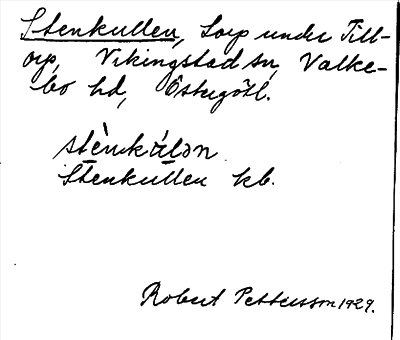 Stenkullen, torp under Till-
orp, Vikingstad sn, Valke-
bo hd, Östergötl.
stènkúlən
Stenkullen kb.
Robert Pettersson 1929.